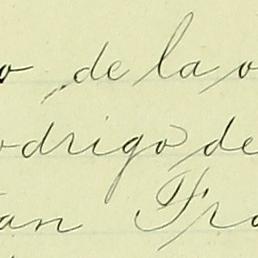 o de la o
odrigo de
an Fra